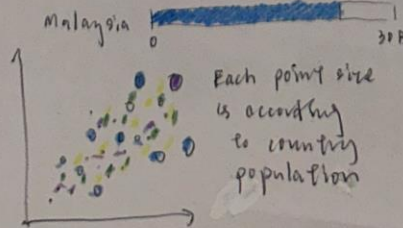 Malaysia
0
Each point size
is according
to country
population